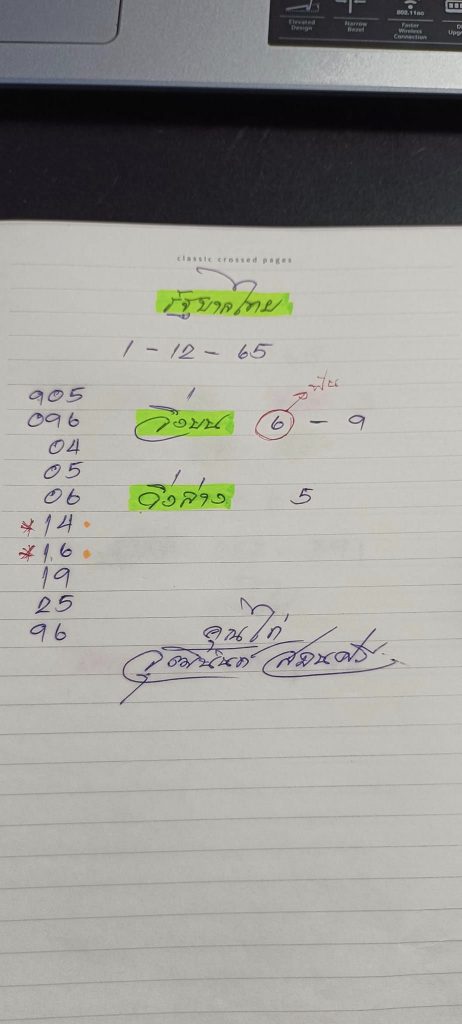 Elevated Design
Narrow Bezel
802.11ac Faster Wireless Connection
classic crossed pages
รัฐบาลไทย
1 - 12 - 65
905
096 วิ่งบน 6 - 9
04
05
06 วิ่งล่าง 5
*14
*16
19
25
96
คุณไก่